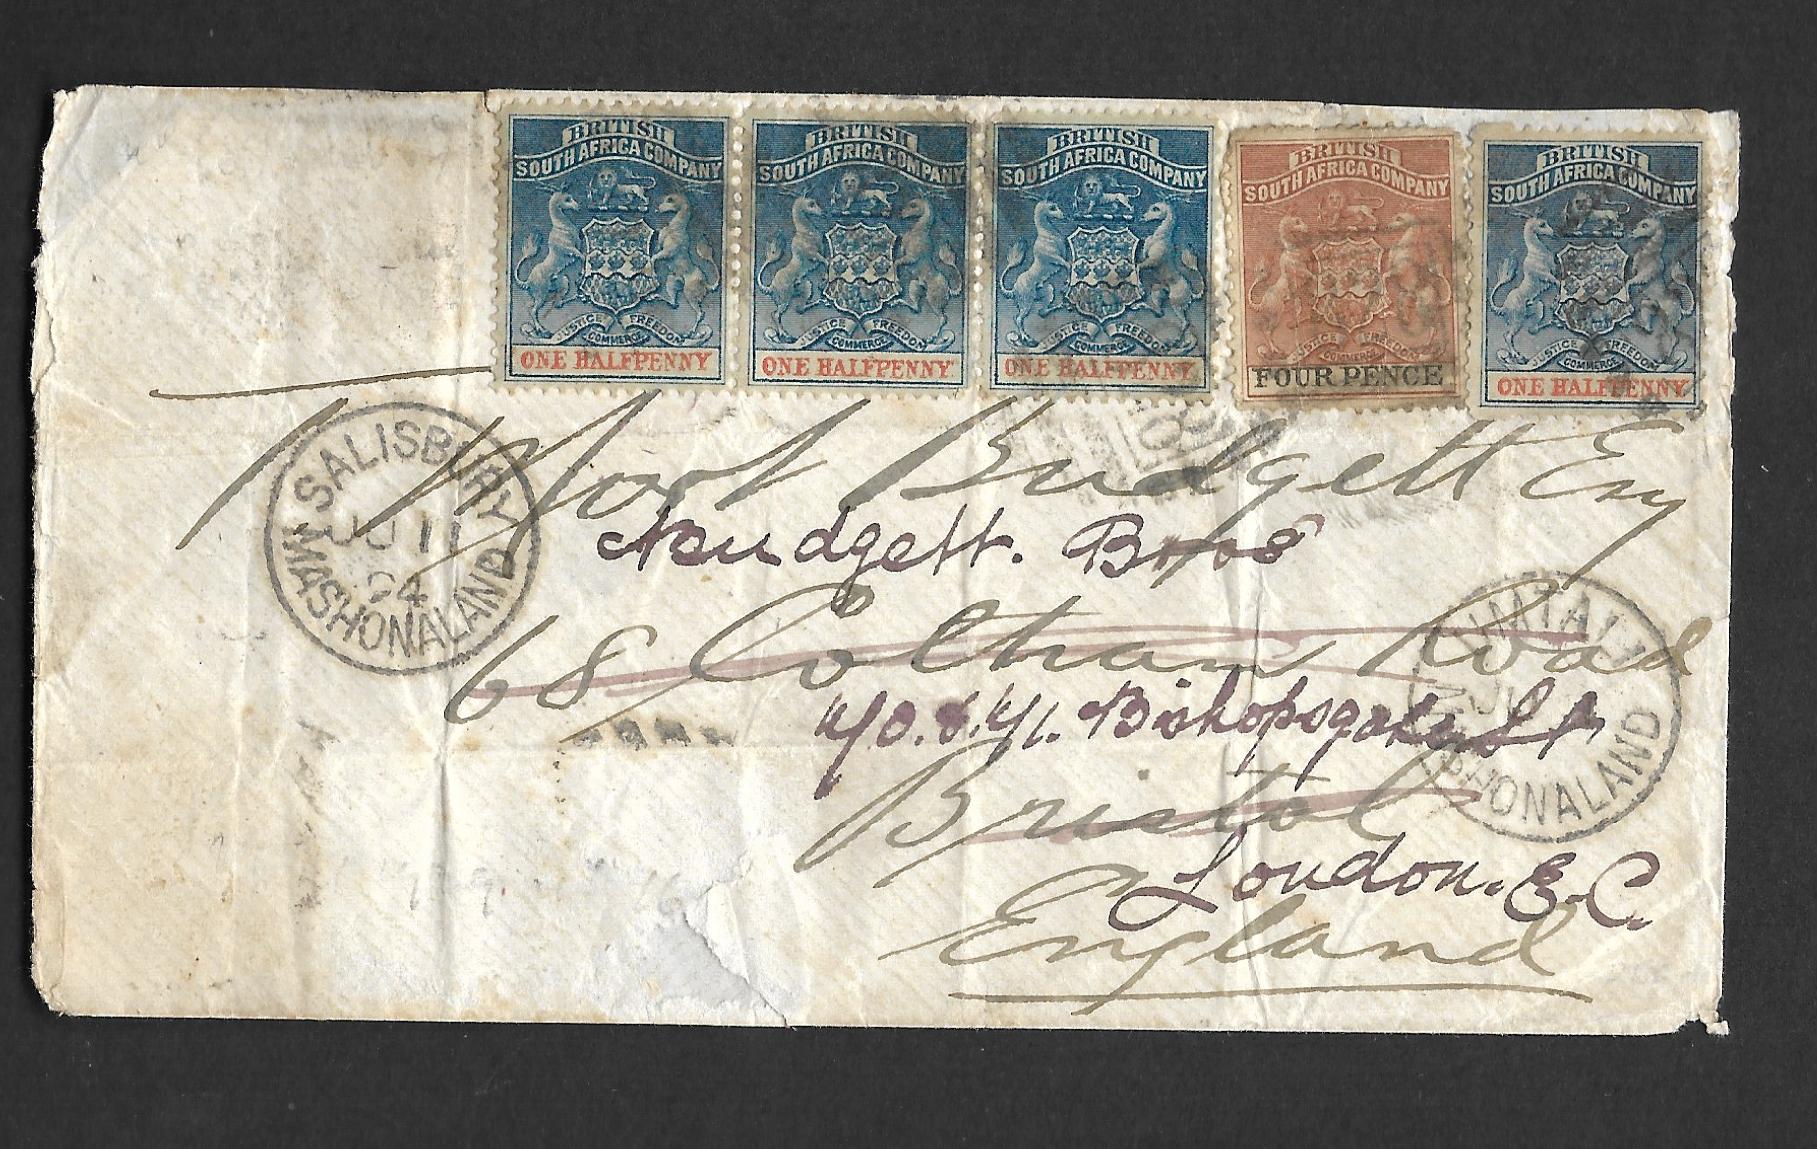 BRITISH
SOUTH AFRICA COMPANY
JUSTICE FREEDOM
COMMERCE
ONE HALFPENNY
BRITISH
SOUTH AFRICA COMPANY
JUSTICE FREEDOM
COMMERCE
ONE HALFPENNY
BRITISH
SOUTH AFRICA COMPANY
JUSTICE FREEDOM
COMMERCE
ONE HALFPENNY
BRITISH
SOUTH AFRICA COMPANY
JUSTICE FREEDOM
COMMERCE
FOUR PENCE
BRITISH
SOUTH AFRICA COMPANY
JUSTICE FREEDOM
COMMERCE
ONE HALFPENNY
SALISBURY
JU 11
94
MASHONALAND
T Budgett Esq
Budgett. Bros
68 Coltham Road
Bishopsgate St
Bristol
London. E.C.
England
UMTALI
JU
MASHONALAND